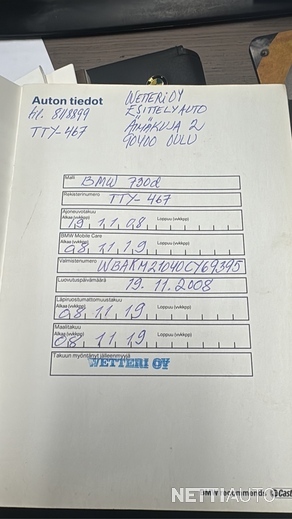 Auton tiedot
TTY-467
WETTERI OY
ESITTELYAUTO
ÄIMÄKUJA 2
90400 OULU
Malli
BMW 730d
Rekisterinumero
TTY-467
Ajoneuvotakuu
Alkaa (vvkkpp) Loppuu (vvkkpp)
BMW Mobile Care
Alkaa (vvkkpp) Loppuu (vvkkpp)
08 11 19
Valmistenumero
WBAKM21040CY69395
Luovutuspäivämäärä
19.11.2008
Läpiruostumattomuustakuu
Alkaa (vvkkpp) Loppuu (vvkkpp)
08 11 19
Maalitakuu
Alkaa (vvkkpp) Loppuu (vvkkpp)
08 11 19
Takuun myöntänyt jälleenmyyjä
WETTERI OY
BMW recommends Cast
NETTIAUTO